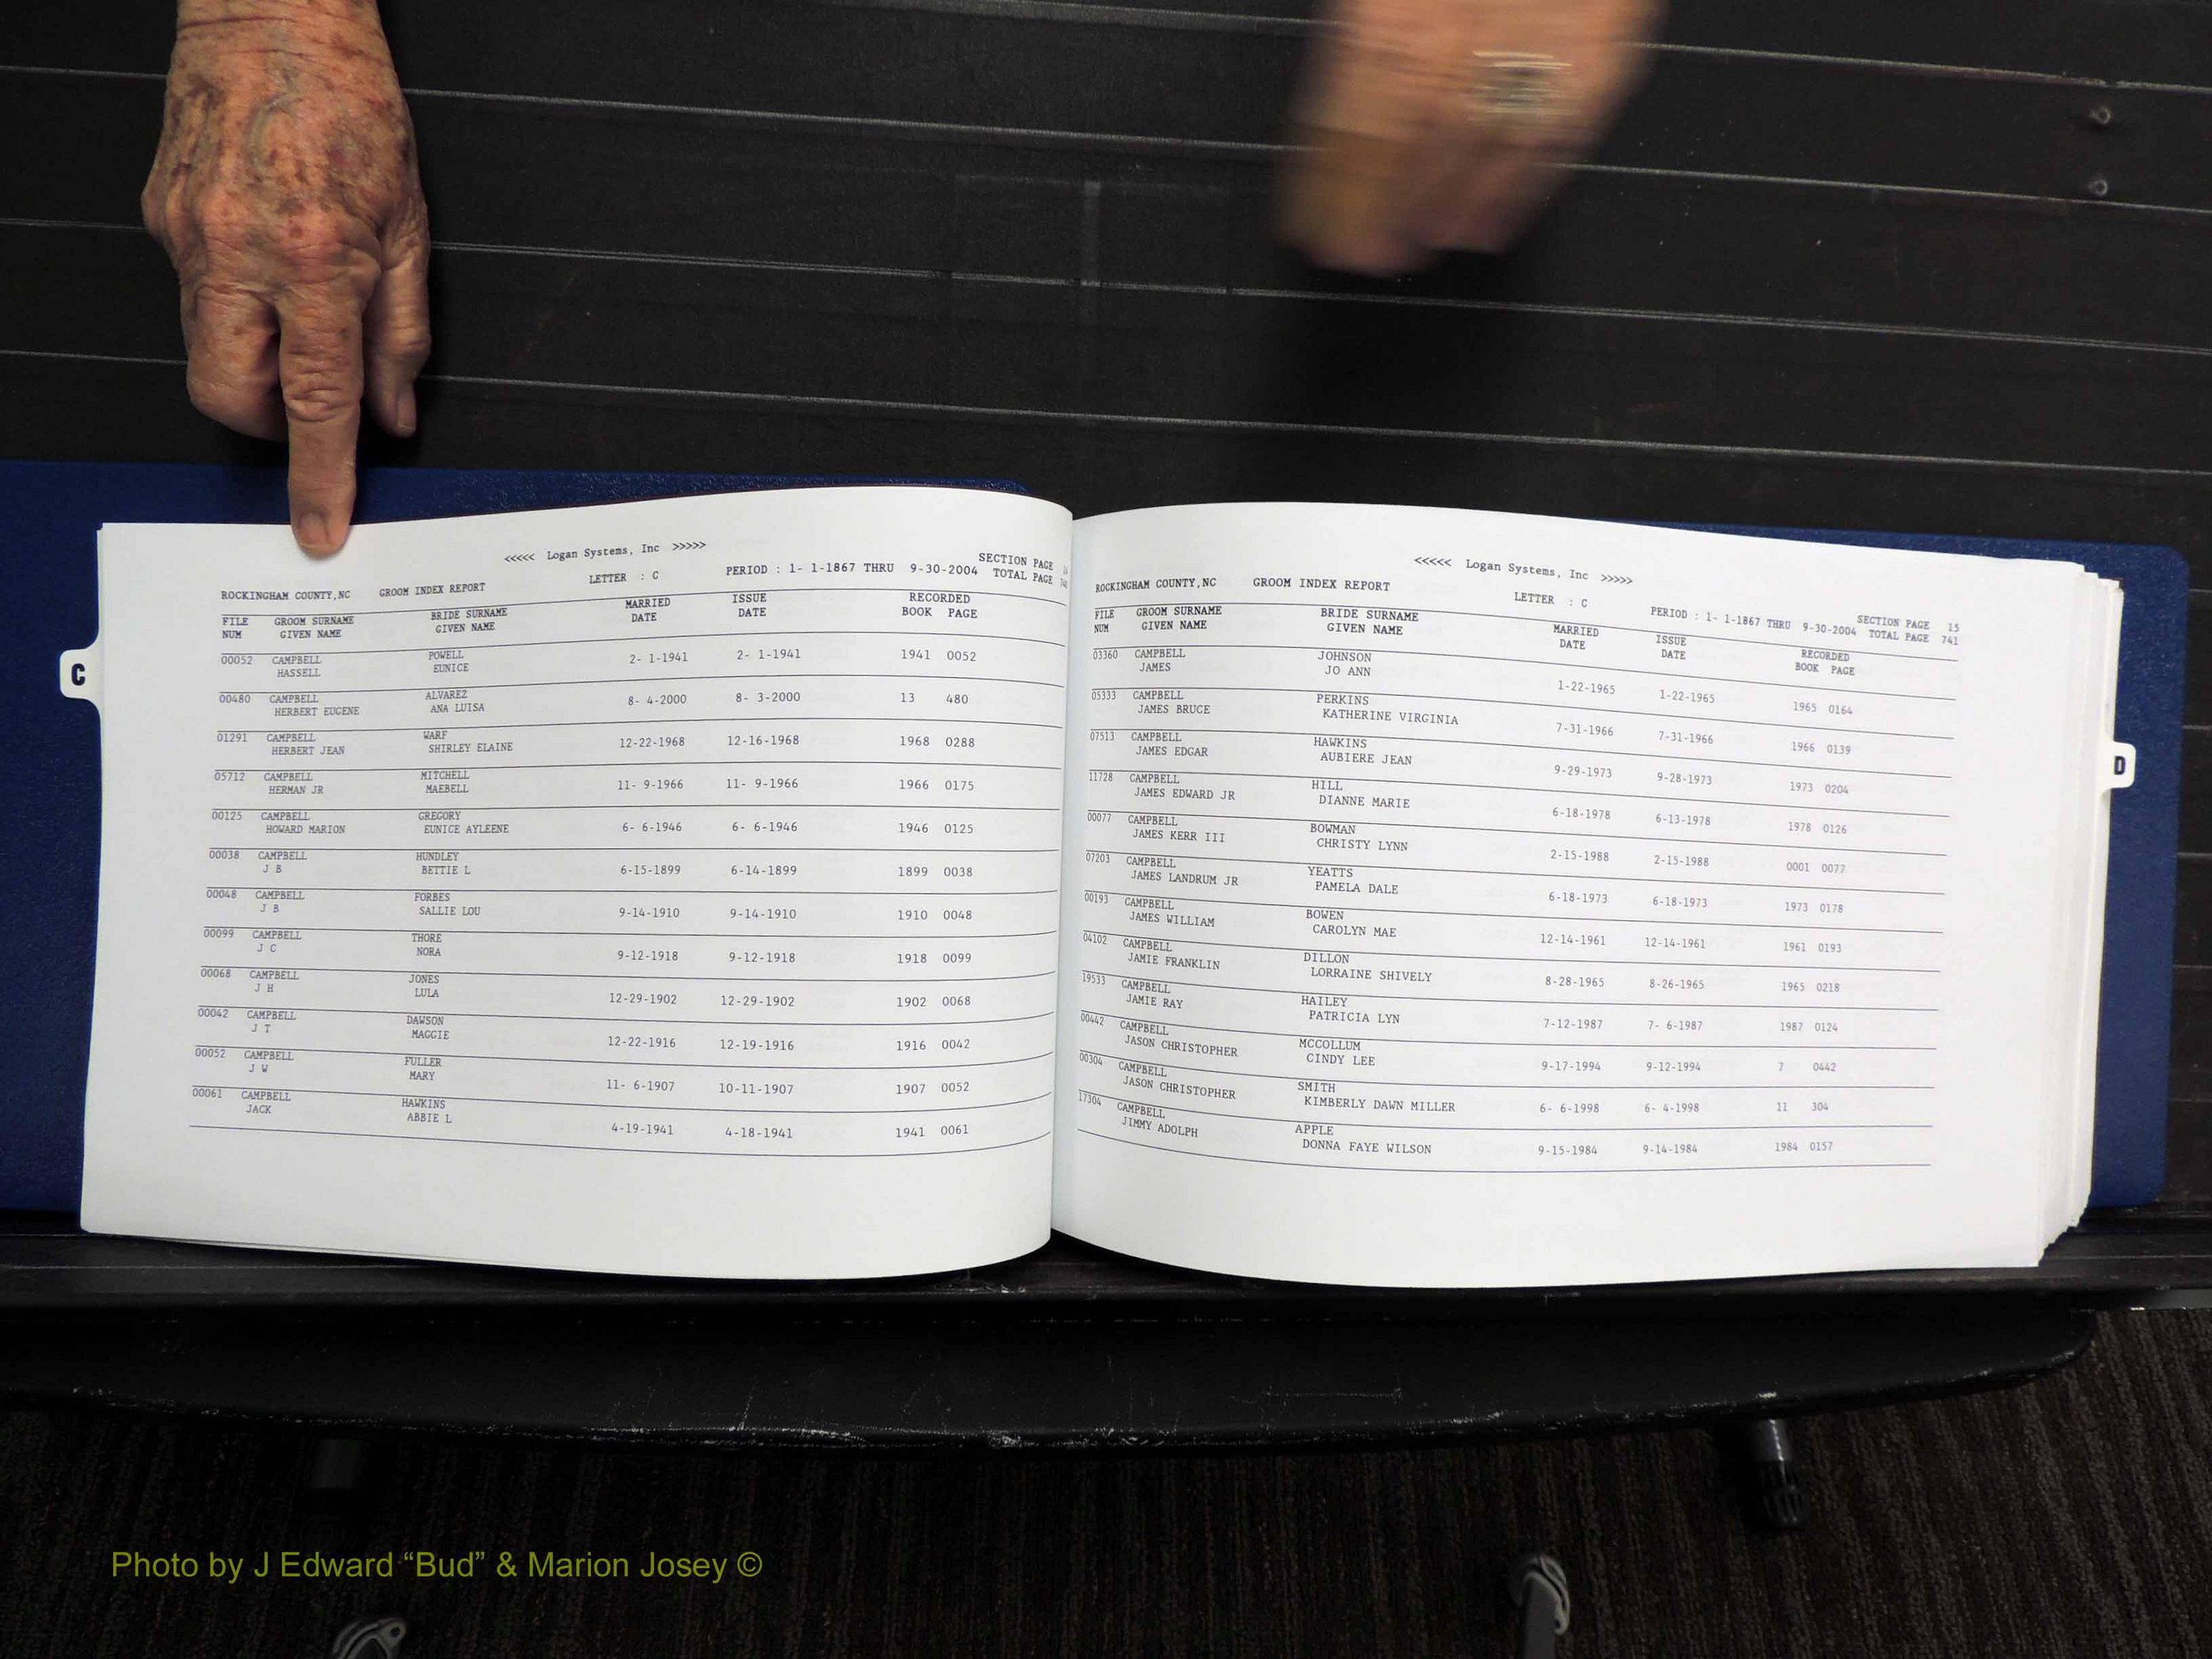 <<<<< Logan Systems, Inc >>>>>
SECTION PAGE
ROCKINGHAM COUNTY,NC GROOM INDEX REPORT LETTER : C PERIOD : 1- 1-1867 THRU 9-30-2004 TOTAL PAGE
FILE GROOM SURNAME BRIDE SURNAME MARRIED ISSUE RECORDED
NUM GIVEN NAME GIVEN NAME DATE DATE BOOK PAGE
00052 CAMPBELL POWELL 2- 1-1941 2- 1-1941 1941 0052
HASSELL EUNICE
00480 CAMPBELL ALVAREZ 8- 4-2000 8- 3-2000 13 480
HERBERT EUGENE ANA LUISA
01291 CAMPBELL WARF 12-22-1968 12-16-1968 1968 0288
HERBERT JEAN SHIRLEY ELAINE
05712 CAMPBELL MITCHELL 11- 9-1966 11- 9-1966 1966 0175
HERMAN JR MAEBELL
00125 CAMPBELL GREGORY 6- 6-1946 6- 6-1946 1946 0125
HOWARD MARION EUNICE AYLEENE
00038 CAMPBELL HUNDLEY 6-15-1899 6-14-1899 1899 0038
J B BETTIE L
00048 CAMPBELL FORBES 9-14-1910 9-14-1910 1910 0048
J B SALLIE LOU
00099 CAMPBELL THORE 9-12-1918 9-12-1918 1918 0099
J C NORA
00068 CAMPBELL JONES 12-29-1902 12-29-1902 1902 0068
J H LULA
00042 CAMPBELL DAWSON 12-22-1916 12-19-1916 1916 0042
J T MAGGIE
00052 CAMPBELL FULLER 11- 6-1907 10-11-1907 1907 0052
J W MARY
00061 CAMPBELL HAWKINS 4-19-1941 4-18-1941 1941 0061
JACK ABBIE L
C
<<<<< Logan Systems, Inc >>>>>
SECTION PAGE 15
ROCKINGHAM COUNTY,NC GROOM INDEX REPORT LETTER : C PERIOD : 1- 1-1867 THRU 9-30-2004 TOTAL PAGE 741
FILE GROOM SURNAME BRIDE SURNAME MARRIED ISSUE RECORDED
NUM GIVEN NAME GIVEN NAME DATE DATE BOOK PAGE
03360 CAMPBELL JOHNSON 1-22-1965 1-22-1965 1965 0164
JAMES JO ANN
05333 CAMPBELL PERKINS 7-31-1966 7-31-1966 1966 0139
JAMES BRUCE KATHERINE VIRGINIA
07513 CAMPBELL HAWKINS 9-29-1973 9-28-1973 1973 0204
JAMES EDGAR AUBIERE JEAN
11728 CAMPBELL HILL 6-18-1978 6-13-1978 1978 0126
JAMES EDWARD JR DIANNE MARIE
00077 CAMPBELL BOWMAN 2-15-1988 2-15-1988 0001 0077
JAMES KERR III CHRISTY LYNN
07203 CAMPBELL YEATTS 6-18-1973 6-18-1973 1973 0178
JAMES LANDRUM JR PAMELA DALE
00193 CAMPBELL BOWEN 12-14-1961 12-14-1961 1961 0193
JAMES WILLIAM CAROLYN MAE
04102 CAMPBELL DILLON 8-28-1965 8-26-1965 1965 0218
JAMIE FRANKLIN LORRAINE SHIVELY
19533 CAMPBELL HAILEY 7-12-1987 7- 6-1987 1987 0124
JAMIE RAY PATRICIA LYN
00442 CAMPBELL MCCOLLUM 9-17-1994 9-12-1994 7 0442
JASON CHRISTOPHER CINDY LEE
00304 CAMPBELL SMITH 6- 6-1998 6- 4-1998 11 304
JASON CHRISTOPHER KIMBERLY DAWN MILLER
17304 CAMPBELL APPLE 9-15-1984 9-14-1984 1984 0157
JIMMY ADOLPH DONNA FAYE WILSON
D
Photo by J Edward “Bud” & Marion Josey ©